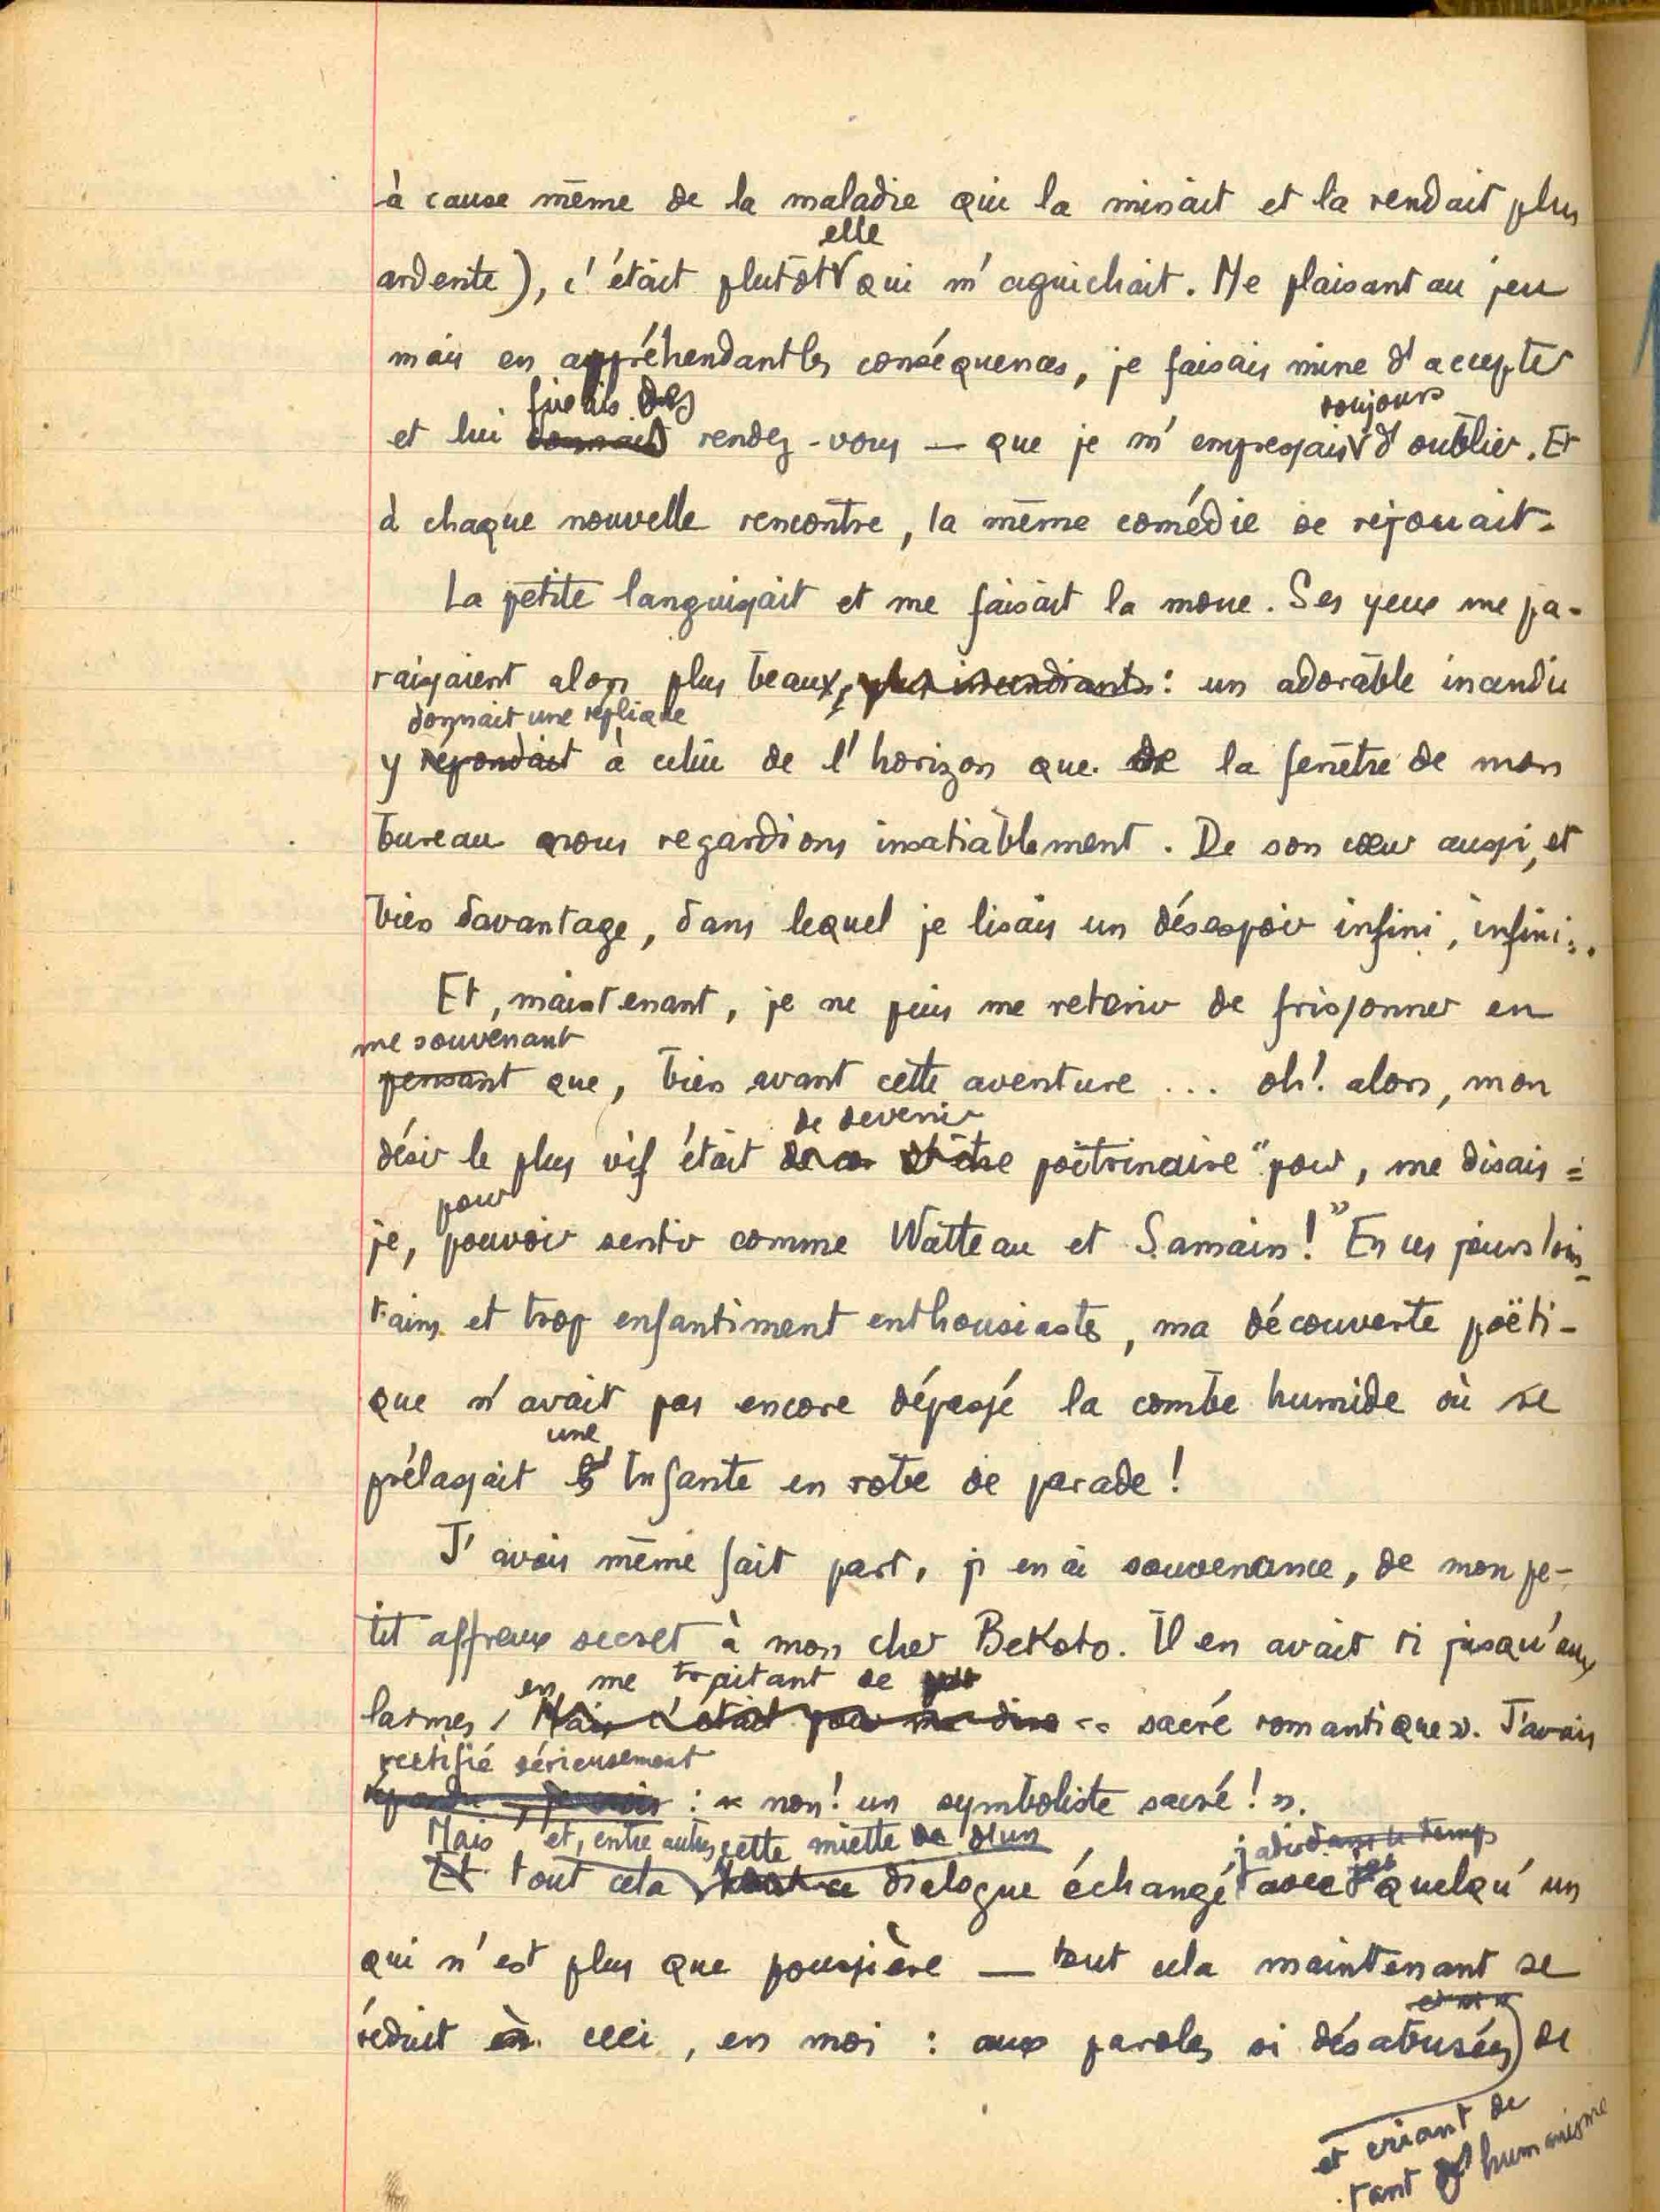 à cause même de la maladie qui la minait et la rendait plus
elle
ardente), c'était plutôt qui m'aguichait. Me plaisant au jeu
mais en appréhendant les conséquences, je faisais mine d'accepter
fixais des toujours
et lui donnais rendez-vous — que je m'empressais d'oublier. Et
à chaque nouvelle rencontre, la même comédie se rejouait.
La petite languissait et me faisait la moue. Ses yeux me pa-
raissaient alors plus beaux, plus incendiants : un adorable incendie
donnait une réplique
y répondait à celui de l'horizon que de la fenêtre de mon
bureau nous regardions insatiablement. De son cœur aussi, et
bien davantage, dans lequel je lisais un désespoir infini, infini..
Et, maintenant, je ne puis me retenir de frissonner en
me souvenant
pensant que, bien avant cette aventure ... oh! alors, mon
de devenir
désir le plus vif était d'être poitrinaire "pour, me disais-
pour
je, pouvoir sentir comme Watteau et Samain!" En ces jours loin-
tains et trop enfantiment enthousiastes, ma découverte poëti-
que n'avait pas encore dépassé la combe humide où se
une
prélassait l' Infante en robe de parade!
J'avais même fait part, j'en ai souvenance, de mon pe-
tit affreux secret à mon cher Bekoto. Il en avait ri jusqu'aux
en me traitant de
larmes, Mais c'était pour me dire « sacré romantique ». J'avais
rectifié sérieusement
répondu, je crois : « non! un symboliste sacré! ».
Mais et, entre autres, cette miette de d'un jadis dans le temps
Et tout cela tout ce dialogue échangé avec quelqu'un
qui n'est plus que poussière — tout cela maintenant se
réduit à ceci, en moi : aux paroles si désabusées de
et criant de
tant d'humanisme